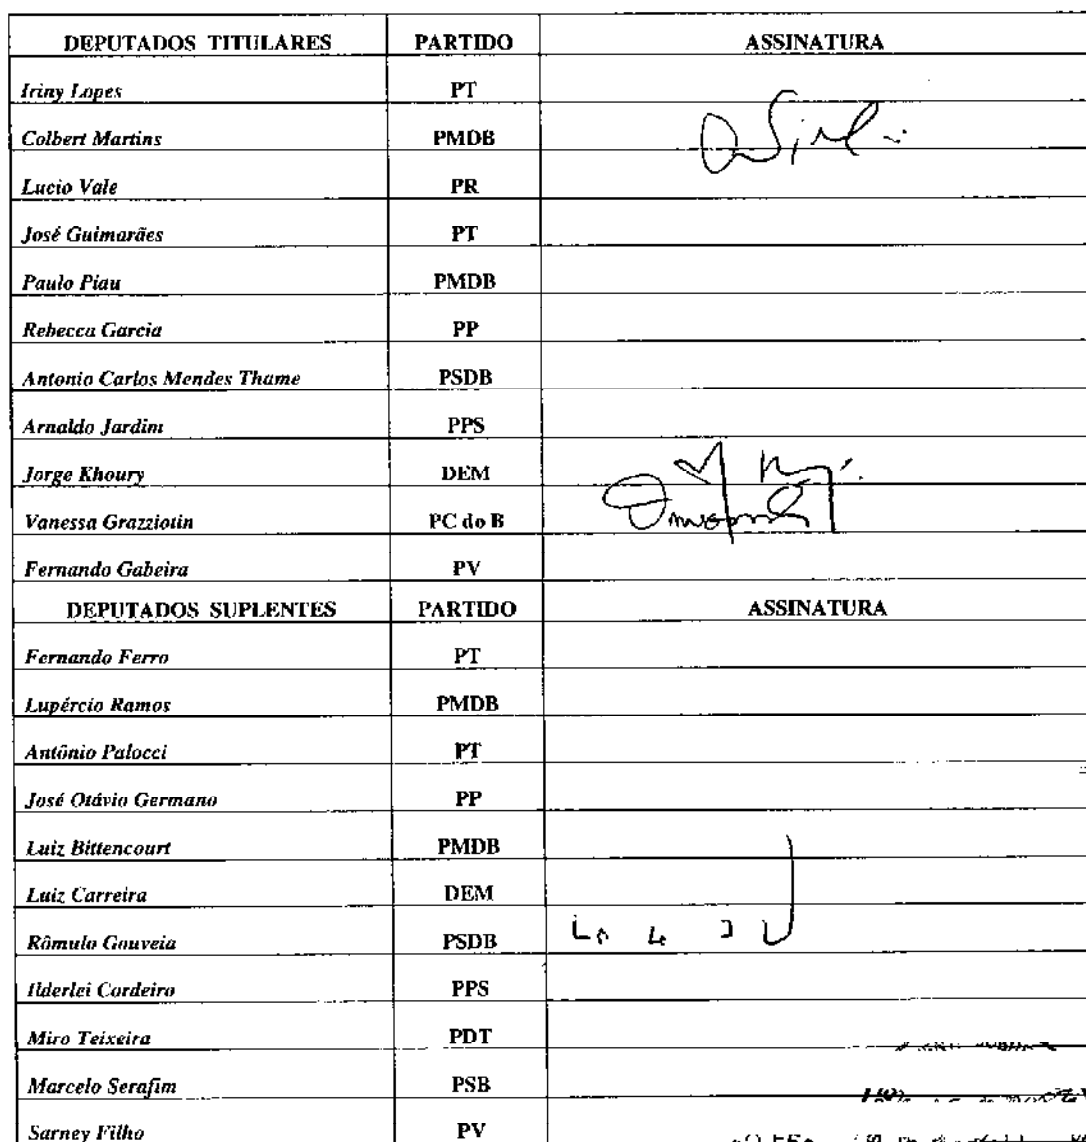 DEPUTADOS TITULARES PARTIDO ASSINATURA
Iriny Lopes PT
Colbert Martins PMDB
Lucio Vale PR
José Guimarães PT
Paulo Piau PMDB
Rebecca Garcia PP
Antonio Carlos Mendes Thame PSDB
Arnaldo Jardim PPS
Jorge Khoury DEM
Vanessa Grazziotin PC do B
Fernando Gabeira PV
DEPUTADOS SUPLENTES PARTIDO ASSINATURA
Fernando Ferro PT
Lupércio Ramos PMDB
Antônio Palocci PT
José Otávio Germano PP
Luiz Bittencourt PMDB
Luiz Carreira DEM
Rômulo Gouveia PSDB
Ilderlei Cordeiro PPS
Miro Teixeira PDT
Marcelo Serafim PSB
Sarney Filho PV